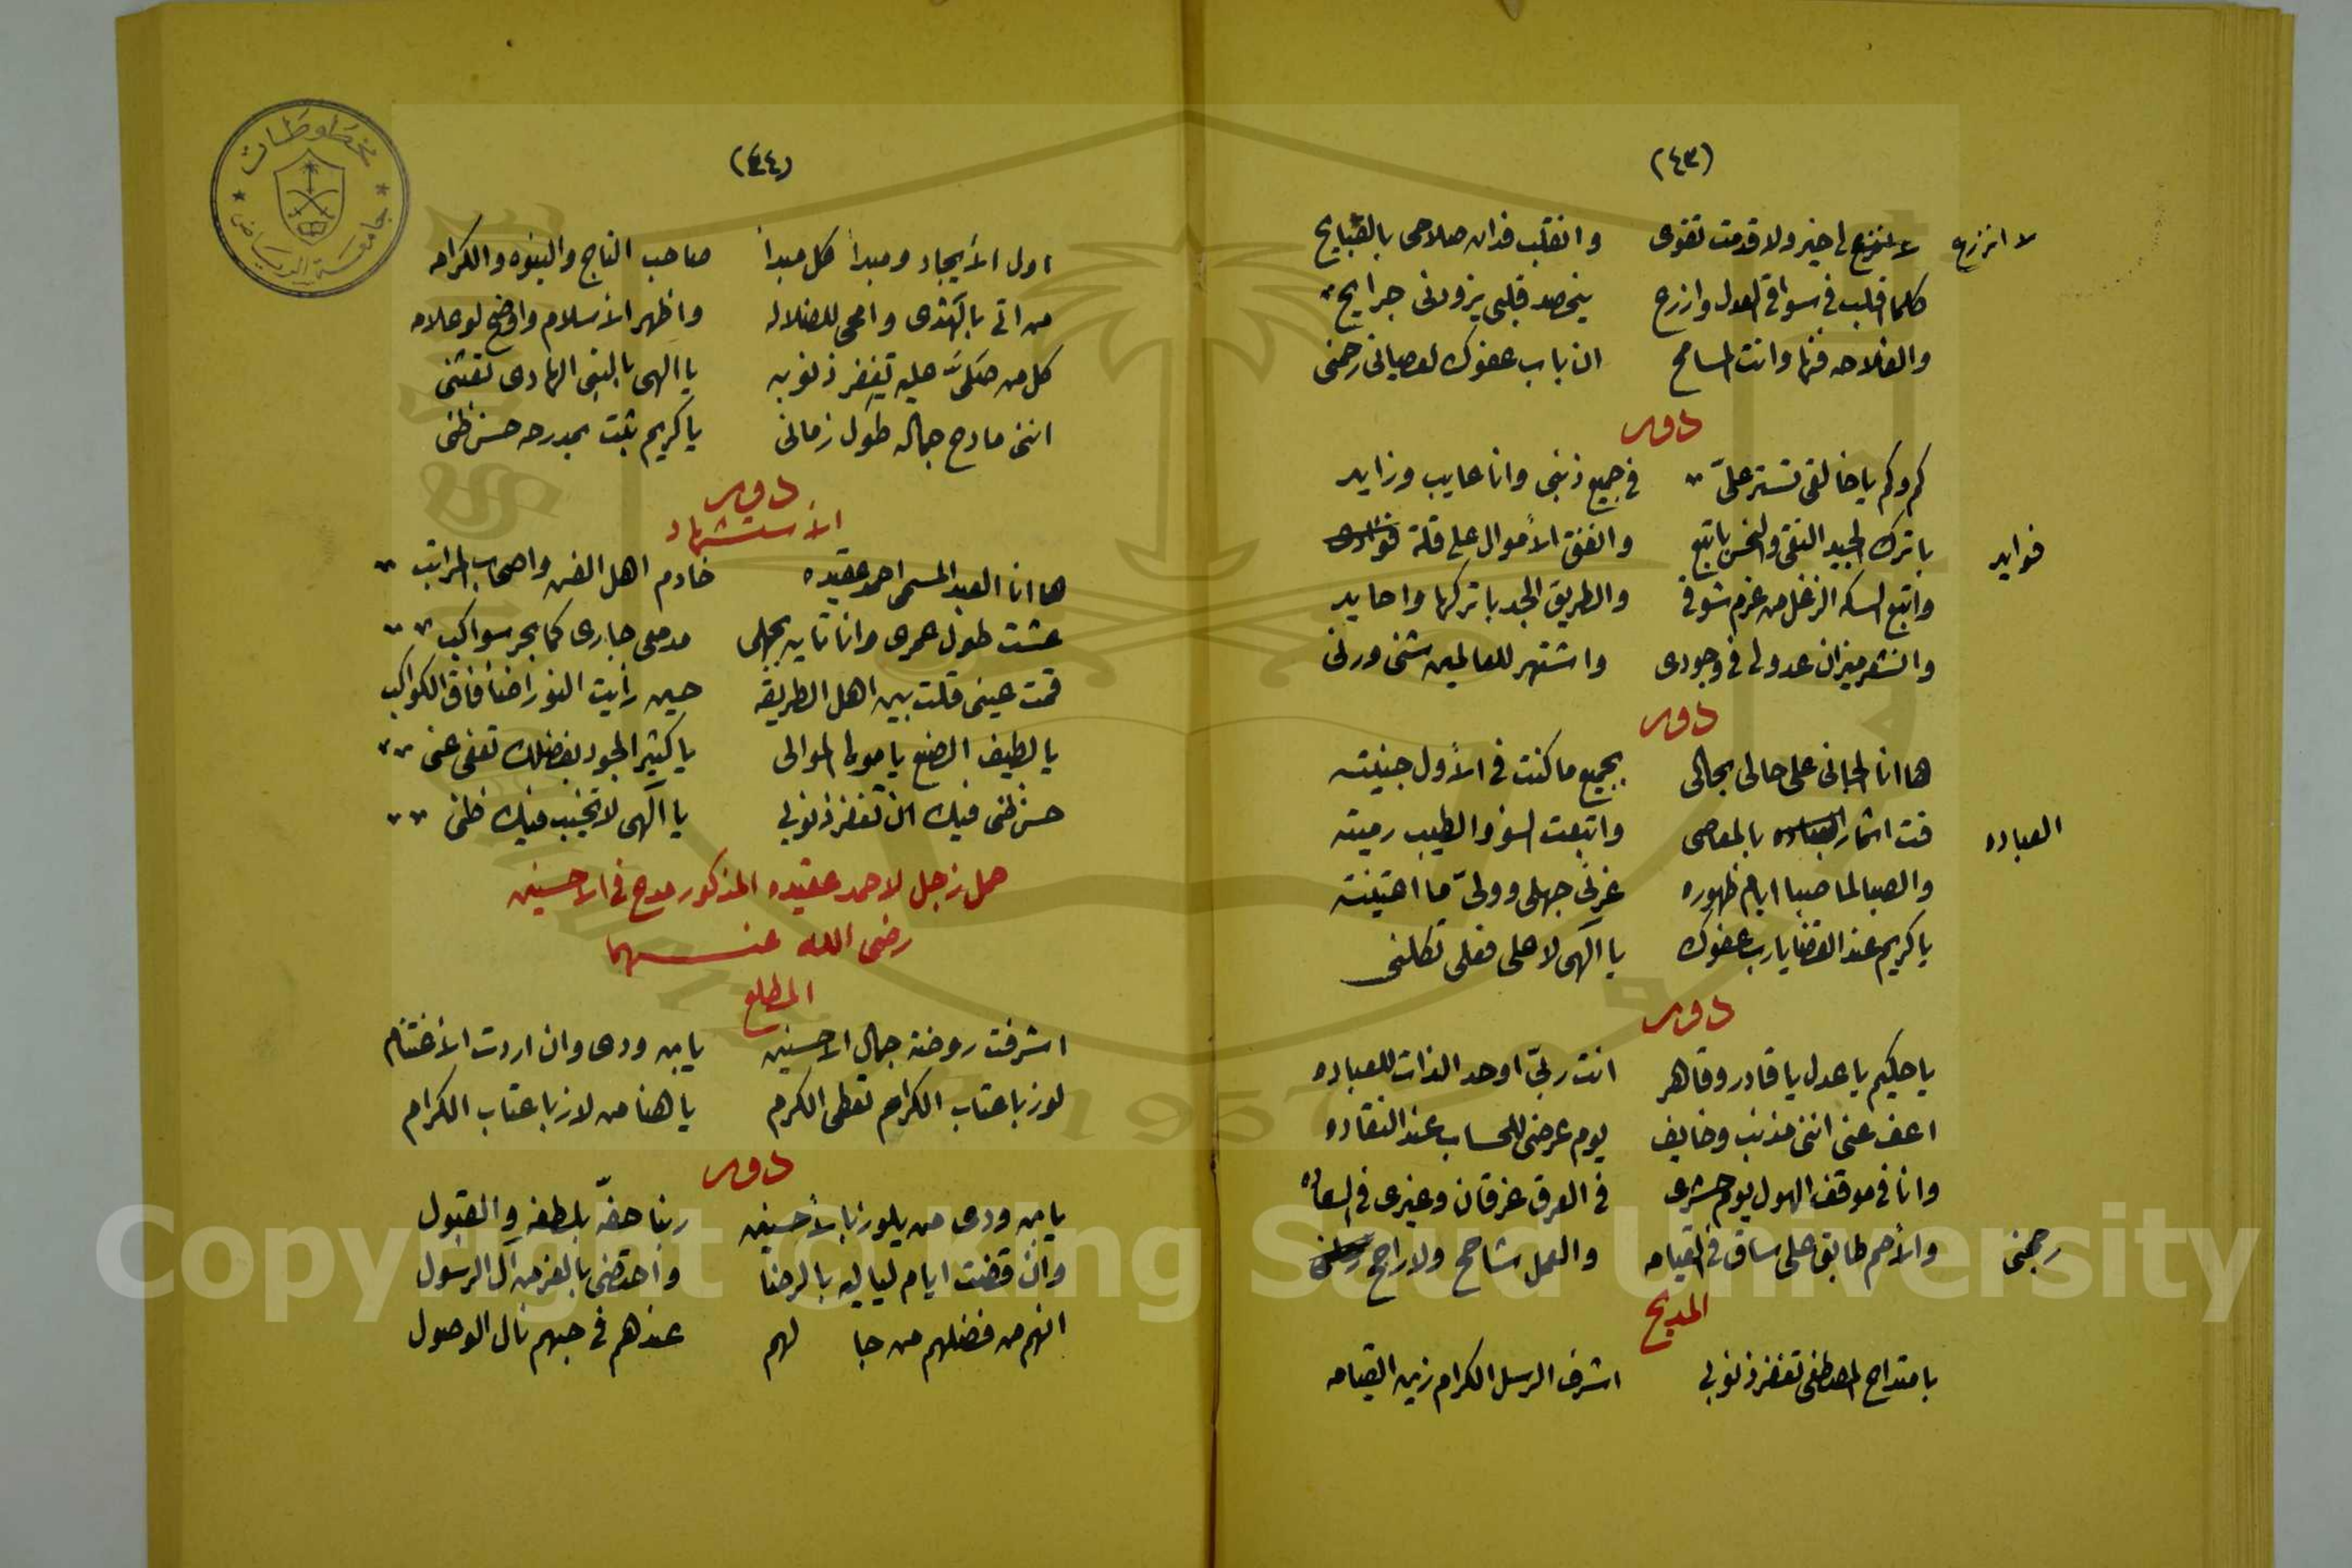 (٤٣)
لا تزرع لى خير ولا قدمت تقوى وانقلب فدان صلاحى بالقبايح
لا انزرع
كلما اقلب فى سواقى العدل وازرع ينحصد قلبى يزودنى جرايح
والفلاحه فنها وانت المسامح ان باب عفوك لعصيانى رحمنى
دور
كم وكم يا خالقى تستر علىّ فى جميع ذنبى وانا عايب وزايد
باترك الجيد النقى والنحس باتبع وانفق الأموال على قلة
فوايد
واتبع السكه الزغل من عزم شوقى والطريق الجد باتركها واحايد
وانشر ميزان عدولى فى وجودى واشتهر للعالمين شنى ورنى
دور
ها انا الجانى على حالى بحالى بجميع ما كنت فى الأول جنيته
فت اثمار العباده بالمعاصى واتبعت السوء والطيب رميته
العباده
والصبا لما صبا ايام ظهوره غرنى جهلى وولىّ ما اقتنيته
يا كريم عند القضا يا رب عفوك يا الهى لا على فعلى تكلنى
دور
يا حكيم يا عدل يا قادر وقاهر انت ربىّ اوحد الذات للعباده
اعف عنى اننى مذنب وخايف يوم عرضى للحساب عند النقاده
وانا فى موقف الهول يوم حشرى فى العرق غرقان وغيرى فى السعاده
والأمم طابق على ساق فى القيامه والعمل شاحح ولا راجح
رجحنى
المديح
بامتداح المصطفى تغفر ذنوبى اشرف الرسل الكرام زين القيامه
(٤٤)
اول الأيجاد ومبدأ كل مبدا صاحب التاج والنبوه والكرامه
من اتى بالهدى وامحى للضلاله واظهر الأسلام واوضح لو علامه
كل من صلىّ عليه تغفر ذنوبه يا الهى بالنبى الهادى تغثنى
اننى مادح جماله طول زمانى يا كريم ثبت بمدحه حسن ظنى
دور
الأستشهاد
ها انا العبد المسمى احمد عقيده خادم اهل الفن واصحاب المراتب
عشت طول عمرى وانا تايه بجهلى مدمعى جارى كما بحر سواكب
قمت عينى قلت بين اهل الطريقه حين رأيت النور اضا فاق الكواكب
يا لطيف الصنع يا مولى الموالى يا كثير الجود بفضلك تعفى عنى
حسن ظنى فيك ان تغفر ذنوبى يا الهى لا تخيب فيك ظنى
حمل زجل لاحمد عقيده المذكور مدح فى الاحسنين
رضى الله عنهما
المطلع
اشرقت روضة جمال الاحسنين يا بن ودى وان اردت الأغتنام
لوز باعتاب الكرام تعطى الكرم يا هنا من لاز باعتاب الكرام
دور
يا بن ودى من يلوز بالأحسنين ربنا حفّه بلطفه والقبول
وان قضت ايام لياليه بالرضا واحتضى بالعز من آل الرسول
انهم من فضلهم من جا لهم عندهم فى حبهم نال الوصول
مخطوطات
جامعة الرياض
Copyright © King Saud University
1957